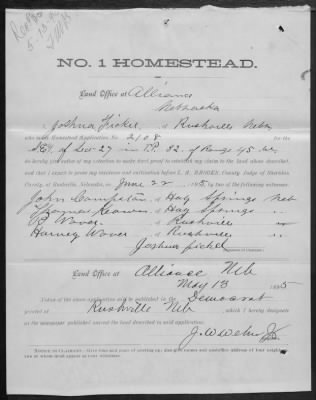 No. 1 HOMESTEAD.
Land Office at Alliance
Nebraska
I, Joshua Fickel of Rushville Neb
who made Homestead Application No. 2108 for the
SE¼ of Sec 27 in T.P. 32. of Range 45
do hereby give notice of my intention to make final proof to establish my claim to the land above described,
and that I expect to prove my residence and cultivation before County Judge of Sheridan
County, at Rushville, Nebraska, on June 22 1895, by two of the following witnesses:
John of Hay Springs Neb
Thomas of Hay Springs "
of Rushville "
Harvey of Rushville "
Joshua Fickel
Land Office at Alliance Neb
May 13 1895
Notice of the above application will be published in the Democrat
printed at Rushville Neb which I hereby designate
as the newspaper published nearest the land described in said application.
Notice to Claimant.